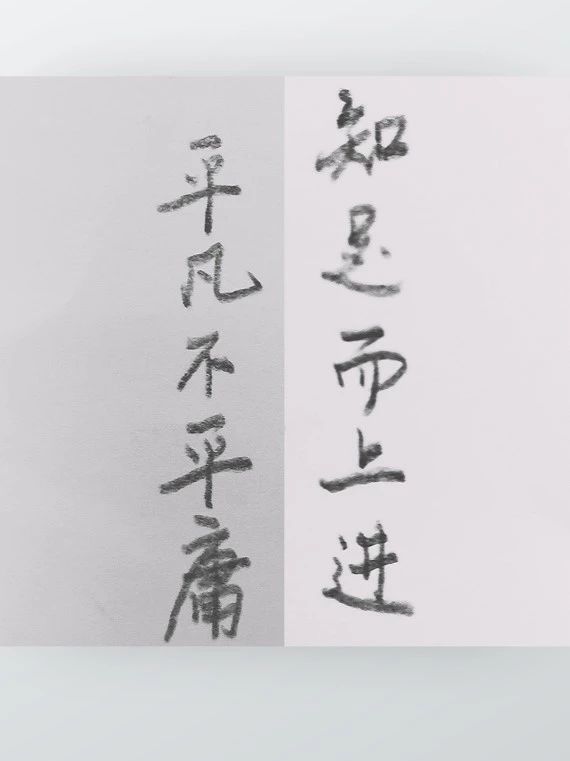 知足而上进
平凡不平庸